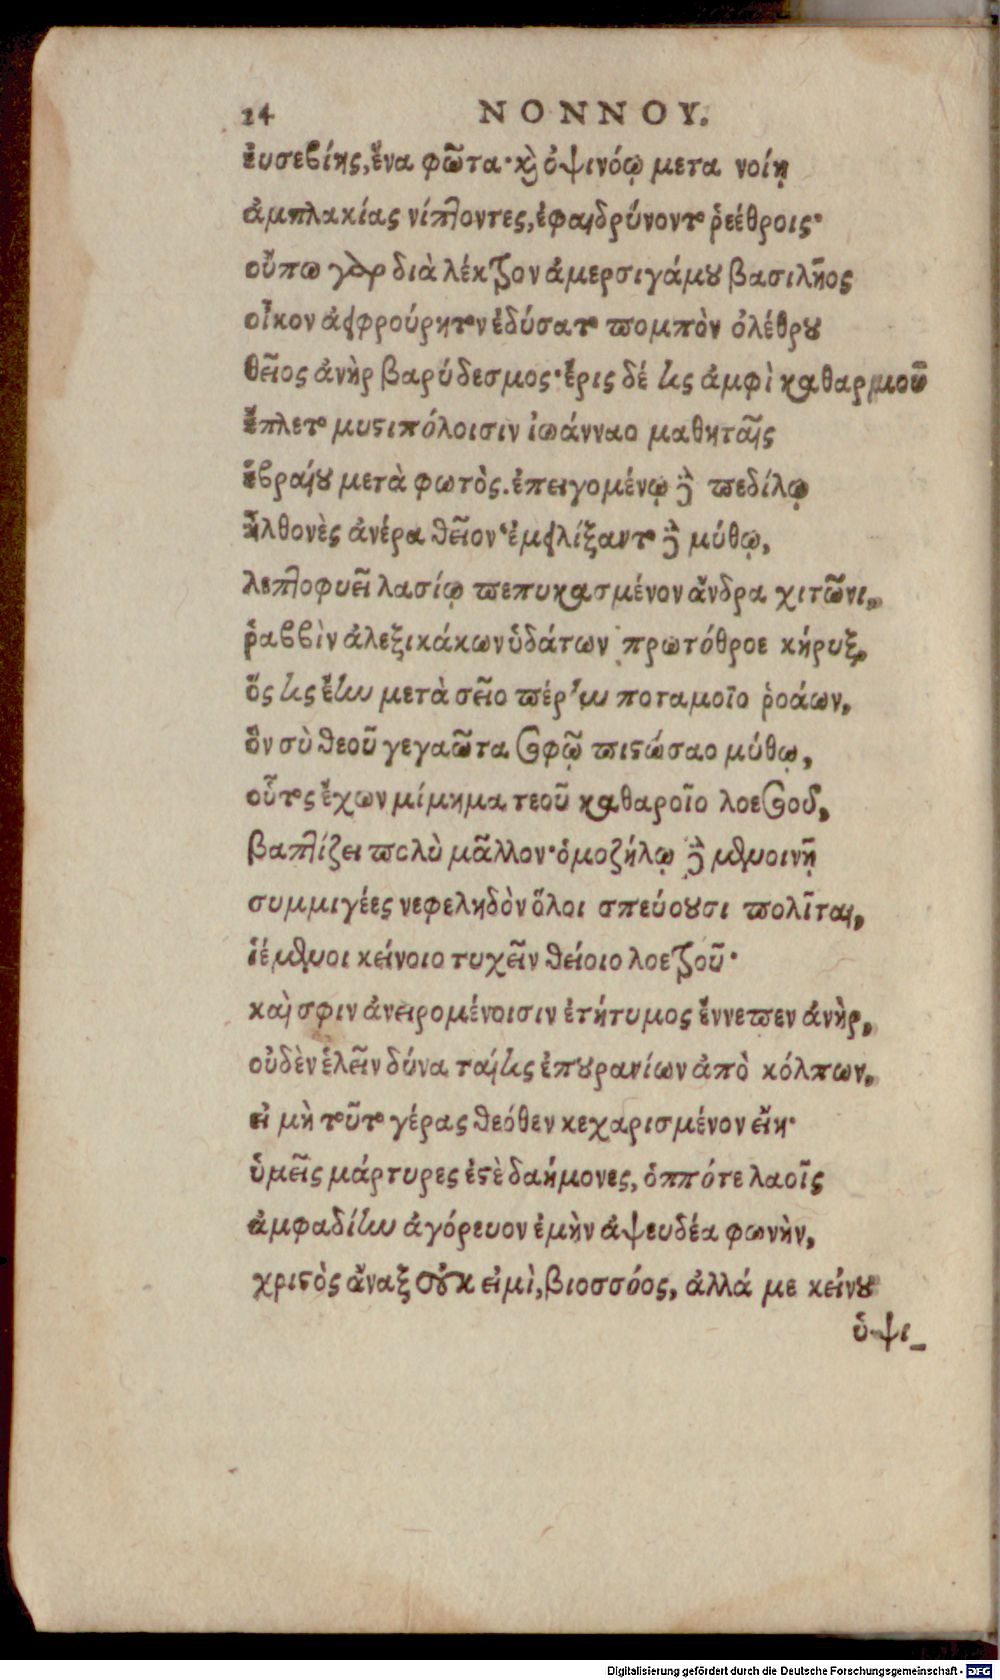 24 ΝΟΝΝΟΥ.
ἐυσεβίης, ἕνα φῶτα· καὶ ὀψινόῳ μετα νοίῃ
ἀμπλακίας νίπτοντες, ἐφαιδρύνοντο ῥεέθροις·
οὔπω γὰρ διὰ λέκτρον ἀμερσιγάμου βασιλῆος
οἶκον ἀφρούρητον ἐδύσατο πομπὸν ὀλέθρου
θεῖος ἀνὴρ βαρύδεσμος· ἔρις δέ τις ἀμφὶ καθαρμοῦ
ἔπλετο μυστιπόλοισιν ἰωάνναο μαθηταῖς
ἑβραίου μετὰ φωτὸς. ἐπειγομένῳ δὲ πεδίλῳ
ἦλθον ἐς ἀνέρα θεῖον· ἐμυθίξαντο δὲ μύθῳ,
λεπτοφυεῖ λασίῳ πεπυκασμένον ἄνδρα χιτῶνι,
ῥαββὶν ἀλεξικάκων ὑδάτων πρωτόθροε κήρυξ,
ὅς τις ἔην μετὰ σεῖο πέρην ποταμοῖο ῥοάων,
ὃν σὺ θεοῦ γεγαῶτα σοφῷ πιστώσαο μύθῳ,
οὗτος ἔχων μίμημα τεοῦ καθαροῖο λοετροῦ,
βαπτίζει πολὺ μᾶλλον· ὁμοζήλῳ δὲ μενοινῇ
συμμιγέες νεφεληδὸν ὅλοι σπεύουσι πολῖται,
ἱέμενοι κείνοιο τυχεῖν θείοιο λοετροῦ·
καὶ σφιν ἀνειρομένοισιν ἐτήτυμος ἔννεπεν ἀνὴρ,
οὐδὲν ἑλεῖν δύναταί τις ἐπουρανίων ἀπὸ κόλπων,
εἰ μὴ τοῦτο γέρας θεόθεν κεχαρισμένον εἴη·
ὑμεῖς μάρτυρες ἐστὲ δαήμονες, ὁππότε λαοῖς
ἀμφαδίην ἀγόρευον ἐμὴν ἀψευδέα φωνὴν,
χριστὸς ἄναξ οὐκ εἰμὶ, βιοσσόος, ἀλλά με κείνου
ὑψι_
Digitalisierung gefördert durch die Deutsche Forschungsgemeinschaft - DFG